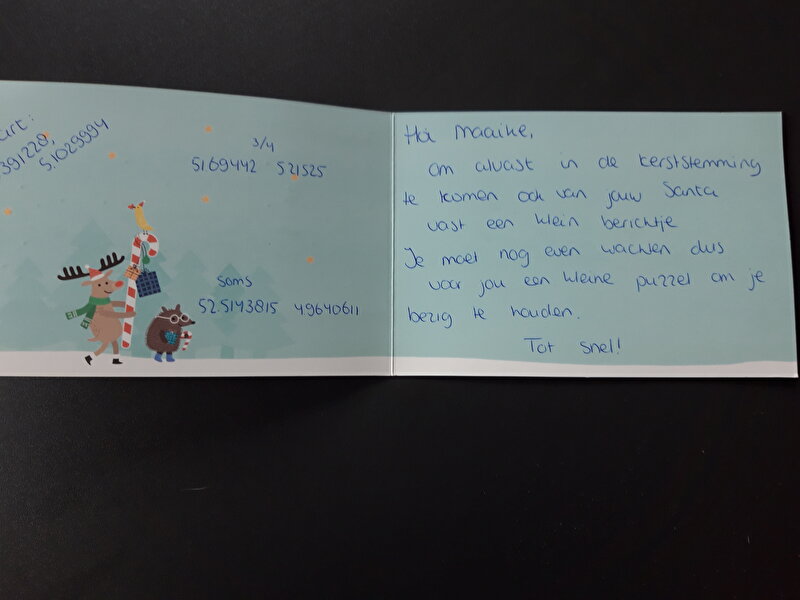 391220,
5,1029994
3/4
51.69442 521525
Soms
52.5143815 49640611
Hoi Maaike,
Om alvast in de kerststemming
te komen ook van jouw Santa
vast een klein berichtje
Je moet nog even wachten dus
voor jou een kleine puzzel om je
bezig te houden.
Tot snel!